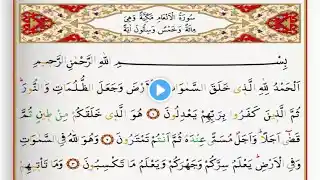 سُورَةُ الْاَنْعَامِ مَكِّيَّةٌ وَهِيَ
مِائَةٌ وَخَمْسٌ وَسِتُّونَ اٰيَةً
بِسْمِ اللّٰهِ الرَّحْمٰنِ الرَّحِيمِ
اَلْحَمْدُ لِلّٰهِ الَّذِي خَلَقَ السَّمٰوَاتِ وَالْاَرْضَ وَجَعَلَ الظُّلُمَاتِ وَالنُّورَ
ثُمَّ الَّذِينَ كَفَرُوا بِرَبِّهِمْ يَعْدِلُونَ ١ هُوَ الَّذِي خَلَقَكُمْ مِنْ طِينٍ ثُمَّ
قَضٰى اَجَلًا وَاَجَلٌ مُسَمًّى عِنْدَهُ ثُمَّ اَنْتُمْ تَمْتَرُونَ ٢ وَهُوَ اللّٰهُ فِي السَّمٰوَاتِ
وَفِي الْاَرْضِ يَعْلَمُ سِرَّكُمْ وَجَهْرَكُمْ وَيَعْلَمُ مَا تَكْسِبُونَ ٣ وَمَا تَأْتِيهِمْ